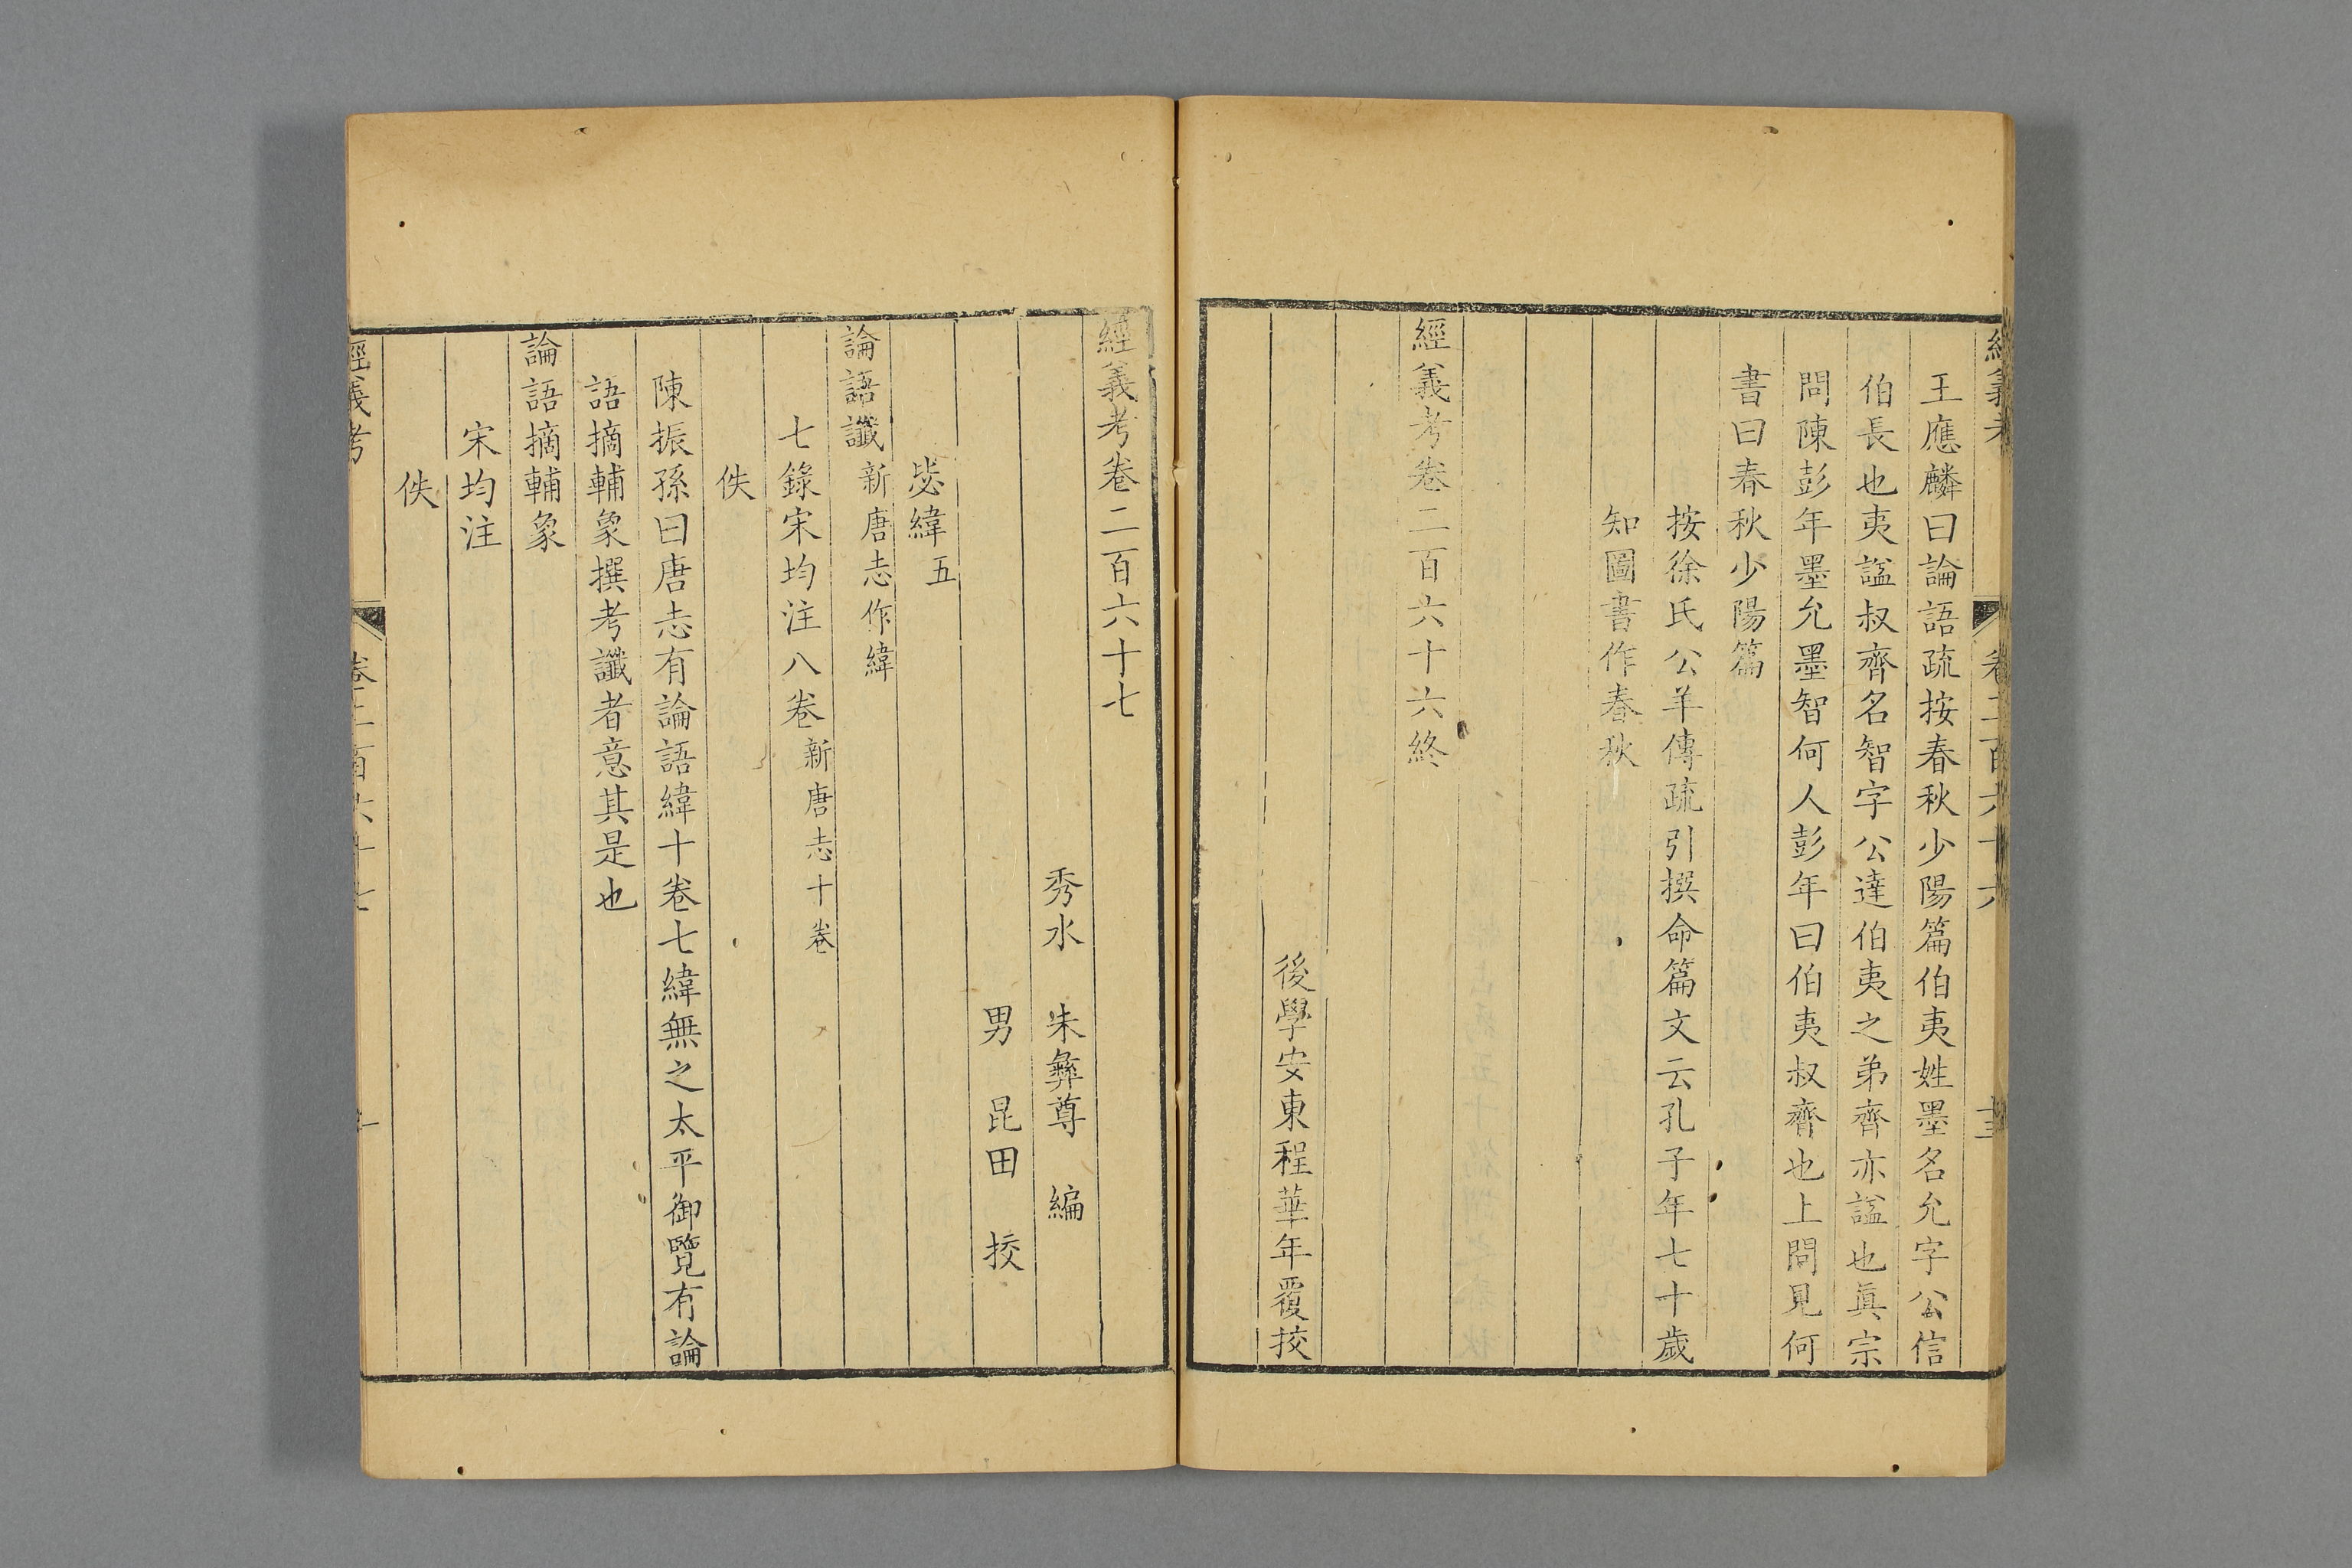 經義考 卷二百六十六 十三
王應麟曰論語疏按春秋少陽篇伯夷姓墨名允字公信
伯長也夷諡叔齊名智字公達伯夷之弟齊亦諡也眞宗
問陳彭年墨允墨智何人彭年曰伯夷叔齊也上問見何
書曰春秋少陽篇
按徐氏公羊傳疏引撰命篇文云孔子年七十歲
知圖書作春秋
經義考卷二百六十六終
後學安東程華年覆挍
經義考卷二百六十七
秀水 朱彝尊 編
男 昆田 挍
毖緯五
論語讖新唐志作緯
七錄宋均注八卷新唐志十卷
佚
陳振孫曰唐志有論語緯十卷七緯無之太平御覽有論
語摘輔象撰考讖者意其是也
論語摘輔象
宋均注
佚
經義考 卷二百六十七